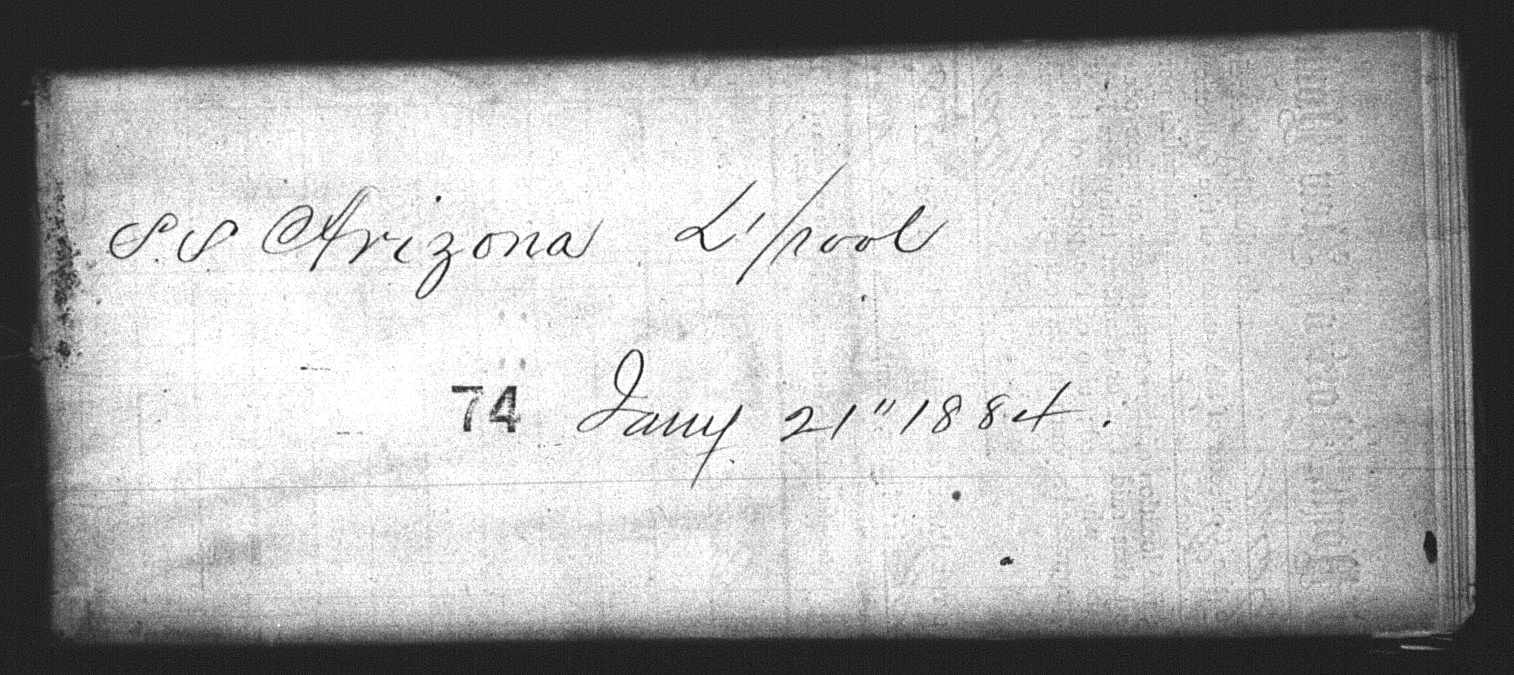 S.S Arizona L'pool
74 Jany 21" 1884.